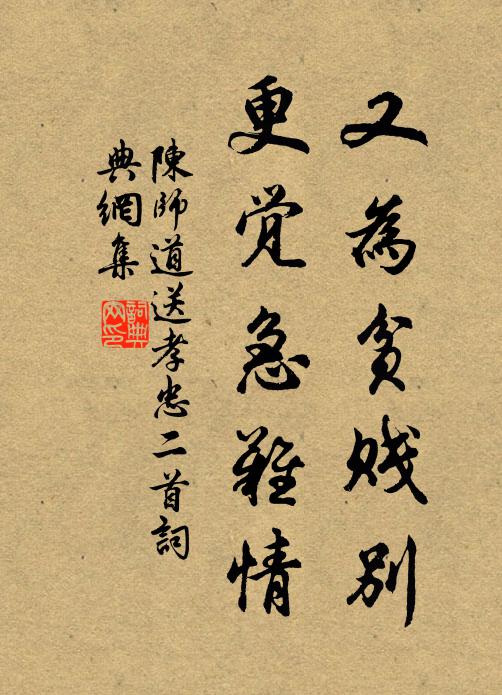 又為貧賤別
更覚急難情
陳師道送孝忠二首詞
典網集
詞典
网印